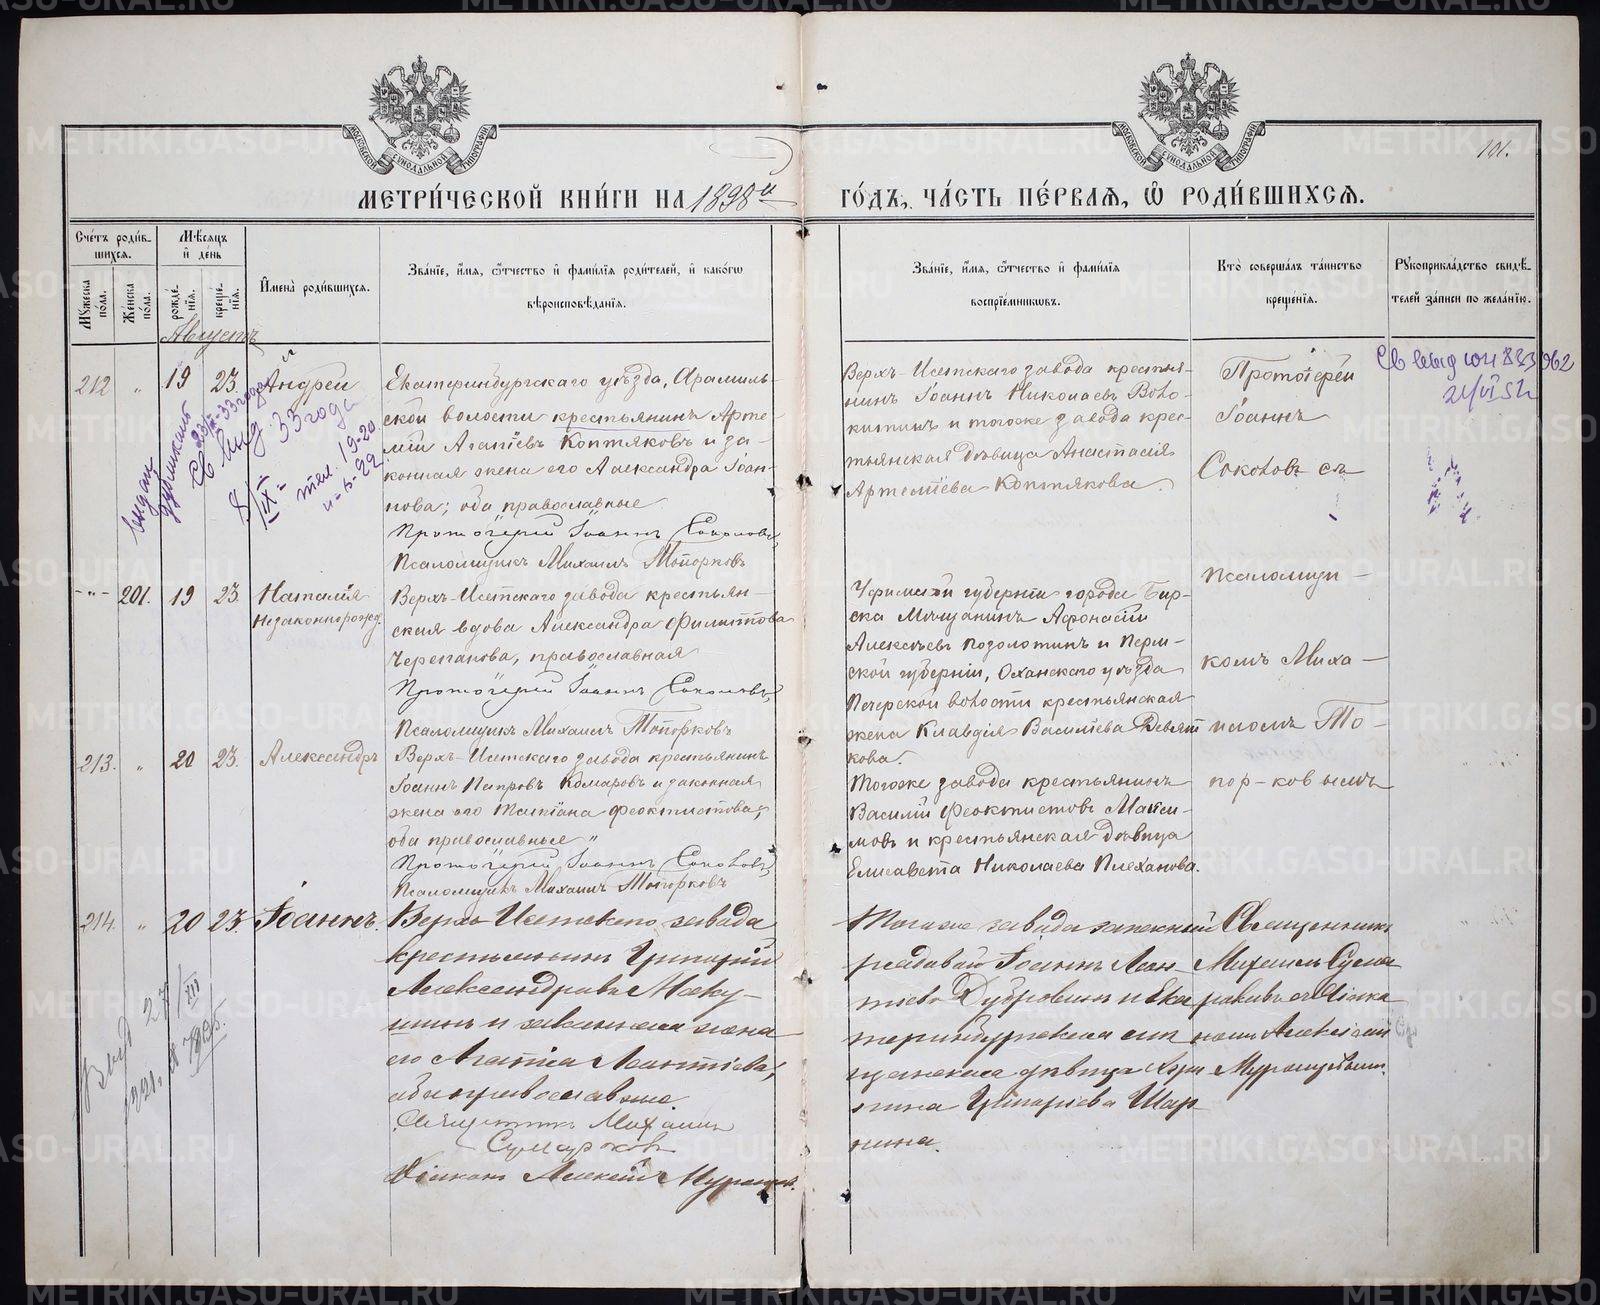 МЕТРИ́ЧЕСКОЙ КНИ́ГИ НА 1898й ГО́ДЪ, ЧА́СТЬ ПЕ́РВАЯ, Ѡ РОДИ́ВШИХСЯ.
101.
Сче́тъ роди́в-
шихся.
Му́жеска по́ла.
Же́нска по́ла.
Мѣ́сяцъ и де́нь
рожде́-нія.
креще́-нія.
И҆мена̀ роди́вшихся.
Зва́ніе, и҆́мя, ѻ҆́тчество и҆ фами́лія роди́телей, и҆ како́гѡ
вѣроисповѣ́данія.
Зва́ніе, и҆́мя, ѻ҆́тчество и҆ фами́лія
воспріе́мниковъ.
Кто̀ соверша́лъ та́инство
креще́нія.
Рꙋкоприкла́дство свидѣ́-
телей за́писи по жела́нію.
Августъ
212 " 19 23. Андрей
Екатеринбургскаго уѣзда, Арамиль-
ской волости крестьянинъ Арте-
мій Агапіевъ Коптяковъ и за-
конная жена его Александра Іоан-
нова; оба православные
Протоіерей Іоаннъ Соколовъ
Псаломщикъ Михаилъ Топорковъ
Верхъ-Исетскаго завода крестья-
нинъ Іоаннъ Николаевъ Воло-
китинъ и тогоже завода крес-
тьянская дѣвица Анастасія
Артеміева Коптякова.
Протоіерей
Іоаннъ
Соколовъ съ
выдан
33 года
тел. 19-20
-"- 201. 19 23. Наталія
Незаконнорожд.
Верхъ-Исетскаго завода крестьян-
ская вдова Александра Филиппова
Черепанова, православная
Протоіерей Іоаннъ Соколовъ
Псаломщикъ Михаилъ Топорковъ
Уфимской губерніи города Бир-
ска Мѣщанинъ Афонасій
Алексѣевъ Подзолотинъ и Перм-
ской губерніи, Оханскаго уѣзда
Печерской волости крестьянская
жена Клавдія Васильева Девят-
кова.
псаломщи-
комъ Миха-
иломъ То-
пор-ковымъ
213. " 20 23. Александръ
Верхъ-Исетскаго завода крестьянинъ
Іоаннъ Петровъ Комаровъ и законная
жена его Татіана Феоктистова;
оба православные "
Протоіерей Іоаннъ Соколовъ
Псаломщикъ Михаилъ Топорковъ
Тогоже завода крестьянинъ
Василій Феоктистовъ Макси-
мовъ и крестьянская дѣвица
Елисавета Николаева Плеханова.
214. " 20 23. Іоаннъ.
Верхъ Исетскаго завода
крестьянинъ Григорій
Александровъ Маку-
шинъ и законная жена
его Агапія Леонтіева;
оба православные.
Священникъ Михаилъ
Сумароковъ
Діаконъ Алексій
Тогоже завода запасный
рядовой Іоаннъ Леон-
тіевъ Дубровинъ и Ека
теринбургская мѣ
щанская дѣвица
Григоріева Шар
нина.
Священникъ
Михаилъ Сума
роковъ съ Діако
номъ Алексіемъ
27/III